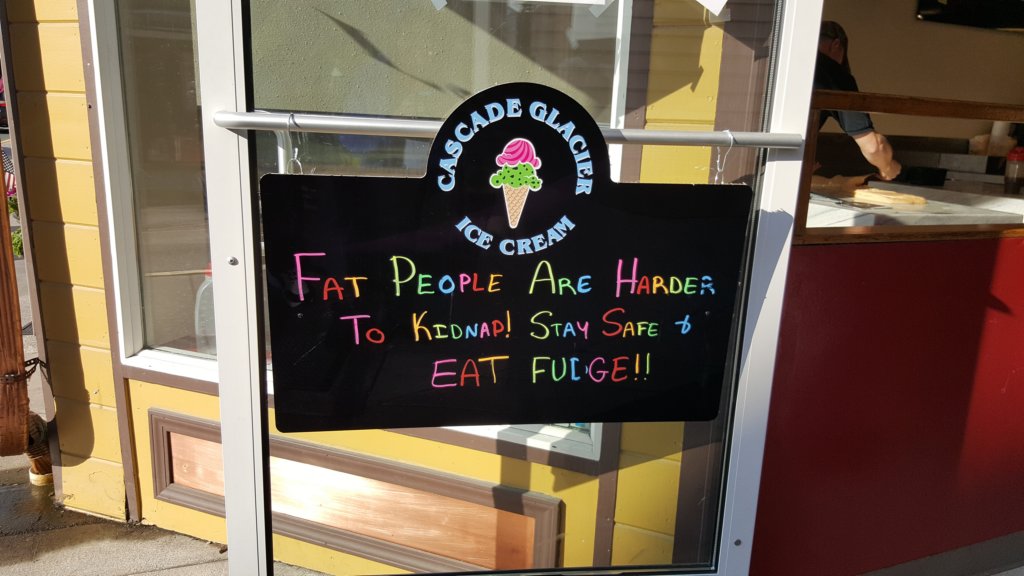 CASCADE GLACIER
ICE CREAM
FAT PEOPLE ARE HARDER
TO KIDNAP! STAY SAFE &
EAT FUDGE!!